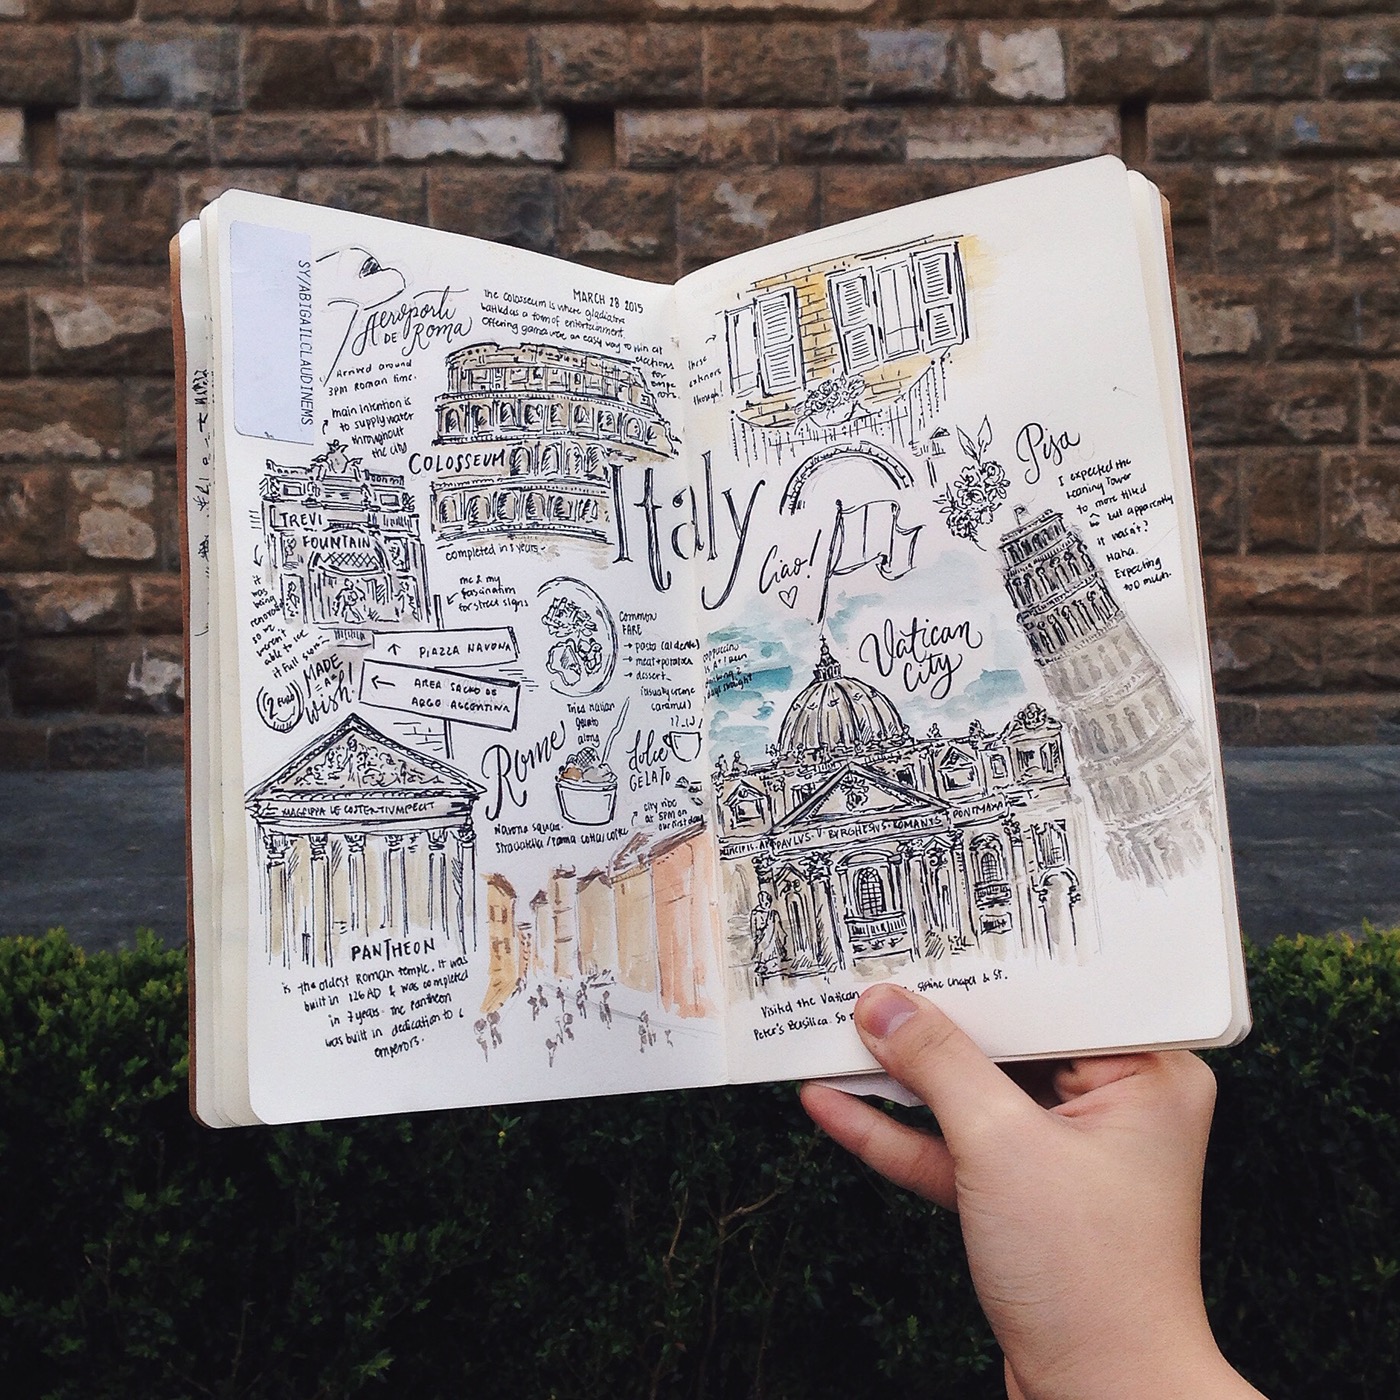 SY/ABIGAILCLAUDINEMS
Aeroporti
DE Roma
Arrived around
3pm Roman time.
main intention is
to supply water
throughout
the city
MARCH 28 2015
The Colosseum is where gladiators
battled as a form of entertainment.
Offering games were an easy way to win at
elections
for
COLOSSEUM
completed in 8 years
TREVI
FOUNTAIN
it
was
being
so we
weren't
able to see
it full
MADE
A
wish!
2 EURO
me & my
fascination
for street signs
PIAZZA NAVONA
AREA SACRO DE
ARGO ARGENTINA
COMMON
FARE
pasta (al dente)
meat + potatoes
dessert
(usually creme
caramel)
Tried Italian
gelato
along
Rome
dolce
GELATO
Navona square.
city vibe
at 5PM on
our first day
M·AGRIPPA LF COSTERTIUMFECIT
PANTHEON
is the oldest Roman temple. It was
built in 126 AD & was completed
in 7 years. The Pantheon
was built in dedication to
emperors.
these
exteriors
though!
Italy
Ciao!
cappuccino
Vatican
City
Pisa
I expected the
Leaning Tower
to more tilted
but apparently
it wasn't?
Haha.
Expecting
too much.
PAVLVS·V·BVRGHESIVS·ROMANVS PONT MAX
Visited the Vatican Sistine Chapel & St.
Peter's Basilica. So